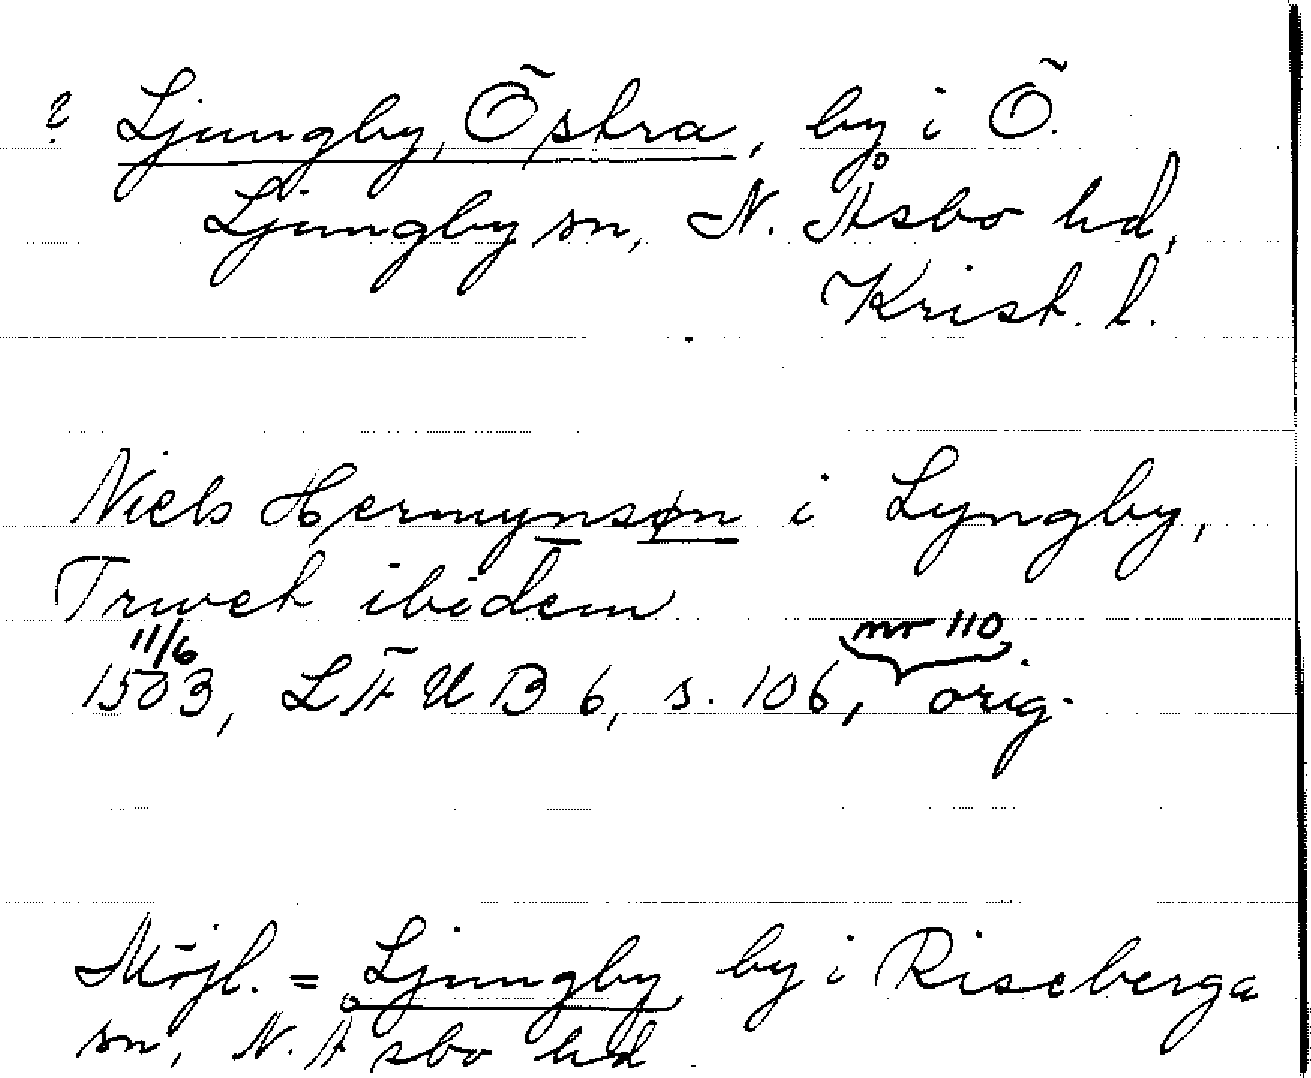 ? Ljungby, Östra, by i Ö.
Ljungby sn, N. Åsbo hd,
Krist. l.
Niels Hermynsøn i Lyngby,
Truvek ibidem
11/6 nr 110
1503, LÄUB 6, s. 106, orig.
Möjl. = Ljungby by i Riseberga
sn, N. Åsbo hd.